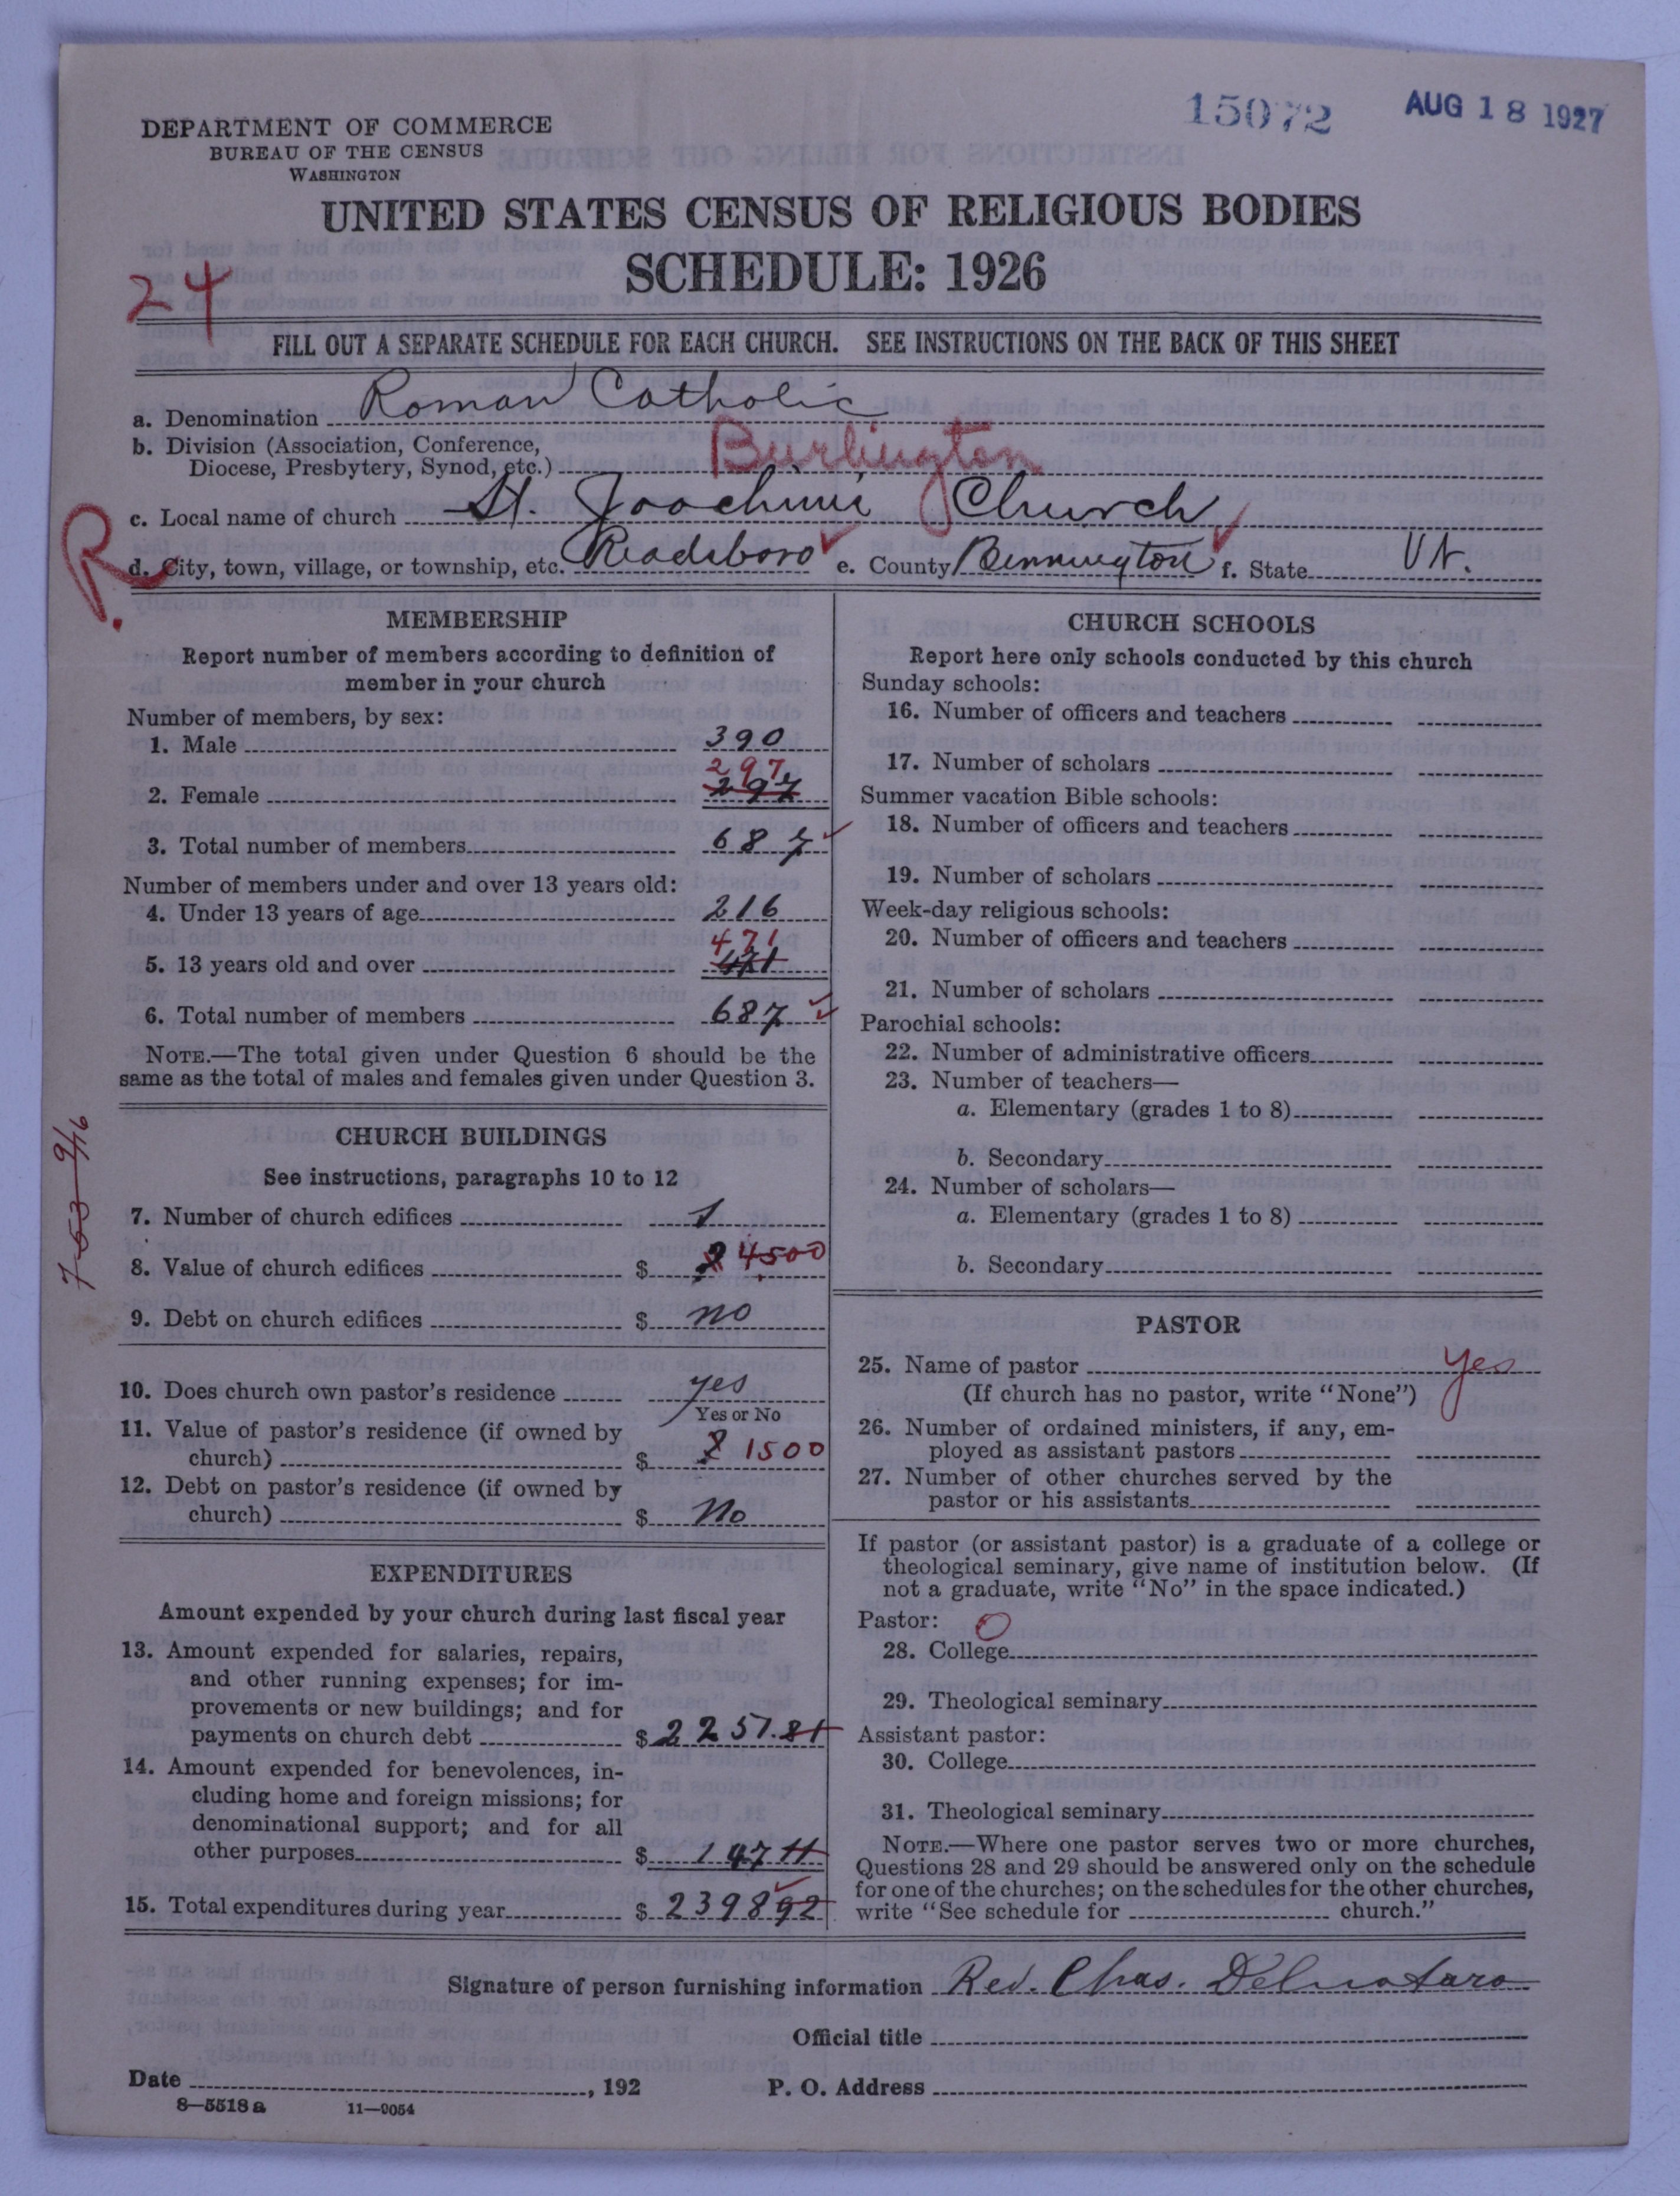 15072 AUG 18 1927
DEPARTMENT OF COMMERCE
BUREAU OF THE CENSUS
WASHINGTON
UNITED STATES CENSUS OF RELIGIOUS BODIES
SCHEDULE: 1926
24
FILL OUT A SEPARATE SCHEDULE FOR EACH CHURCH. SEE INSTRUCTIONS ON THE BACK OF THIS SHEET
a. Denomination Roman Catholic
b. Division (Association, Conference,
Diocese, Presbytery, Synod, etc.) Burlington
c. Local name of church St. Joachim Church
R.
d. City, town, village, or township, etc. Readsboro e. County Bennington f. State Vt.
MEMBERSHIP
Report number of members according to definition of
member in your church
Number of members, by sex:
1. Male 390
297
2. Female 297
3. Total number of members 687
Number of members under and over 13 years old:
4. Under 13 years of age 216
471
5. 13 years old and over 471
6. Total number of members 687
NOTE.—The total given under Question 6 should be the
same as the total of males and females given under Question 3.
7-53 9/16
CHURCH BUILDINGS
See instructions, paragraphs 10 to 12
7. Number of church edifices 1
8. Value of church edifices $ 4500
9. Debt on church edifices $ no
10. Does church own pastor's residence yes
Yes or No
11. Value of pastor's residence (if owned by
church) $ 1500
12. Debt on pastor's residence (if owned by
church) $ No
EXPENDITURES
Amount expended by your church during last fiscal year
13. Amount expended for salaries, repairs,
and other running expenses; for im-
provements or new buildings; and for
payments on church debt $ 2251.81
14. Amount expended for benevolences, in-
cluding home and foreign missions; for
denominational support; and for all
other purposes $ 147 11
15. Total expenditures during year $ 2398 92
CHURCH SCHOOLS
Report here only schools conducted by this church
Sunday schools:
16. Number of officers and teachers
17. Number of scholars
Summer vacation Bible schools:
18. Number of officers and teachers
19. Number of scholars
Week-day religious schools:
20. Number of officers and teachers
21. Number of scholars
Parochial schools:
22. Number of administrative officers
23. Number of teachers—
a. Elementary (grades 1 to 8)
b. Secondary
24. Number of scholars—
a. Elementary (grades 1 to 8)
b. Secondary
PASTOR
25. Name of pastor yes
(If church has no pastor, write "None")
26. Number of ordained ministers, if any, em-
ployed as assistant pastors
27. Number of other churches served by the
pastor or his assistants
If pastor (or assistant pastor) is a graduate of a college or
theological seminary, give name of institution below. (If
not a graduate, write "No" in the space indicated.)
Pastor: O
28. College
29. Theological seminary
Assistant pastor:
30. College
31. Theological seminary
NOTE.—Where one pastor serves two or more churches,
Questions 28 and 29 should be answered only on the schedule
for one of the churches; on the schedules for the other churches,
write "See schedule for church."
Signature of person furnishing information Rev. Chas.
Official title
Date , 192 P. O. Address
8—5518 a 11—9054